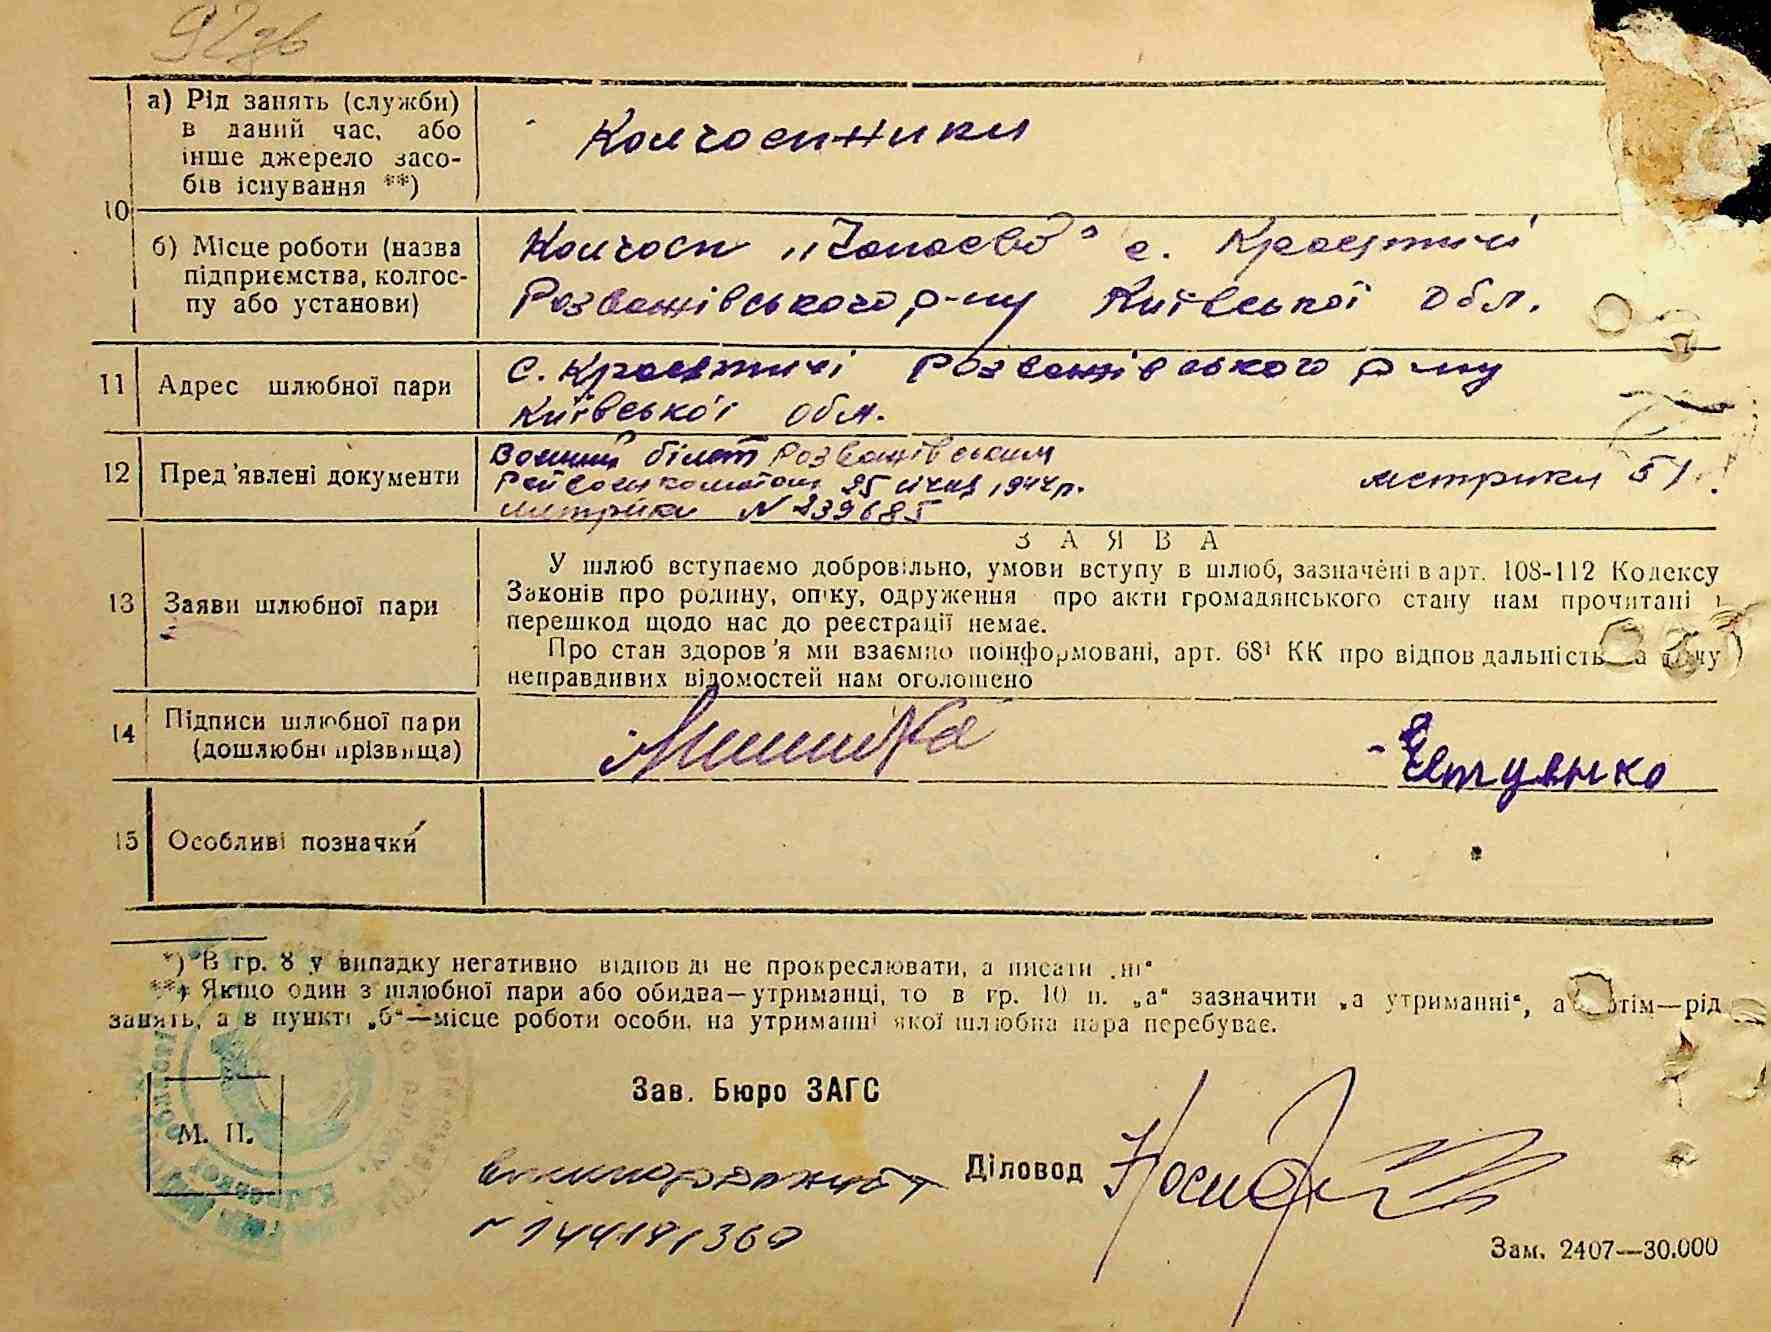 а) Рід занять (служби)
в даний час, або
інше джерело засо-
бів існування **)
Колгосники
10
б) Місце роботи (назва
підприємства, колгос-
пу або установи)
Колгосп „Чапаєва" с. Красятичі
Розважівського р-ну Київської обл.
11 Адрес шлюбної пари
с. Красятичі Розважівського р-ну
Київської обл.
12 Пред'явлені документи
Воєнний білет Розважівським
25 січня 1944 р.
метрики N 239685
метрики
13 Заяви шлюбної пари
ЗАЯВА
У шлюб вступаємо добровільно, умови вступу в шлюб, зазначені в арт. 108-112 Кодексу
Законів про родину, опіку, одруження про акти громадянського стану нам прочитані і
перешкод щодо нас до реєстрації немає.
Про стан здоров'я ми взаємно поінформовані, арт. 68¹ КК про відповідальність за дачу
неправдивих відомостей нам оголошено
14 Підписи шлюбної пари
(дошлюбні прізвища)
15 Особливі позначки
*) В гр. 8 у випадку негативно відповіді не прокреслювати, а писати „ні"
**) Якщо один з шлюбної пари або обидва—утриманці, то в гр. 10 п. „а" зазначити „а утриманні", а потім—рід
занять, а в пункті „б"—місце роботи особи, на утриманні якої шлюбна пара перебуває.
Зав. Бюро ЗАГС
М. П.
Діловод
Зам. 2407—30.000